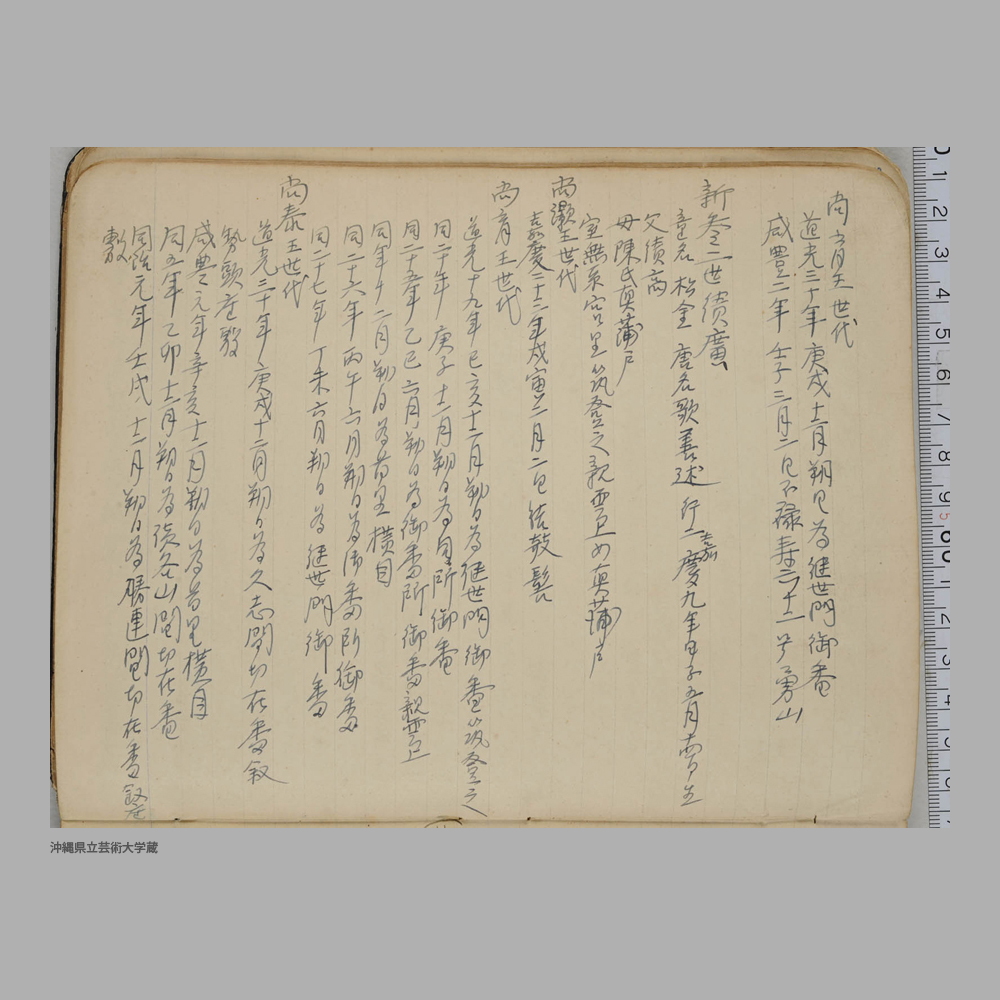 尚育王世代
道光三十年 庚戌 十二月朔日為継世門御番
咸豊二年 壬子三月二日不禄寿六十二 号勇山
新参二世績廣
童名 松金 唐名歌善述 行一嘉慶九年甲子五月 日生
父績高
母陳氏真蒲戸
室無系宮里筑登之親雲上女真蒲戸
尚灝王世代
嘉慶二十二年戊寅二月二日結敧髻
尚育王世代
道光十九年己亥十二月朔日為継世門御番筑登之
同二十年 庚子 十二月朔日為 所御番
同二十五年 乙巳 六月朔日為御番所 御番親雲上
同年十二月朔日為首里横目
同二十六年 丙午六月朔日為御番所御番
同二十七年 丁未六月朔日為 継世門御番
尚泰王世代
道光三十年 庚戌十二月朔日為久志間切在番叙
勢頭座敷
咸豊元年辛亥十二月朔日為首里横目
同五年 乙卯十二月朔日為読谷山間切在番
同治元年 壬戌 十二月朔日為勝連間切在番叙座
敷
沖縄県立芸術大学蔵